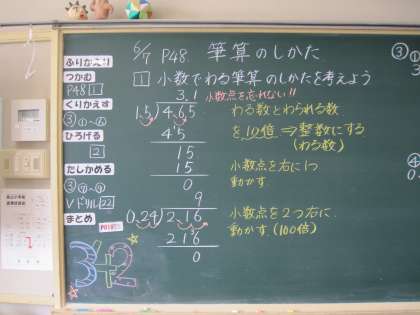 6/7 P48 筆算のしかた
ふりかえり
つかむ
P48 1
くりかえす
③ ⑦~⑨
ひろげる
2
たしかめる
③ ⑦~⑨
Vドリル 22
まとめ
1 小数でわる筆算のしかたを考えよう
小数点を忘れない!!
3.1
1.5 4.6.5
4 5
1 5
1 5
0
わる数とわられる数
を10倍 ⇒ 整数にする
(わる数)
小数点を右に1つ
動かす
9
0.24 2.16
2 1 6
0
小数点を2つ右に
動かす(100倍)
3÷2
③
④